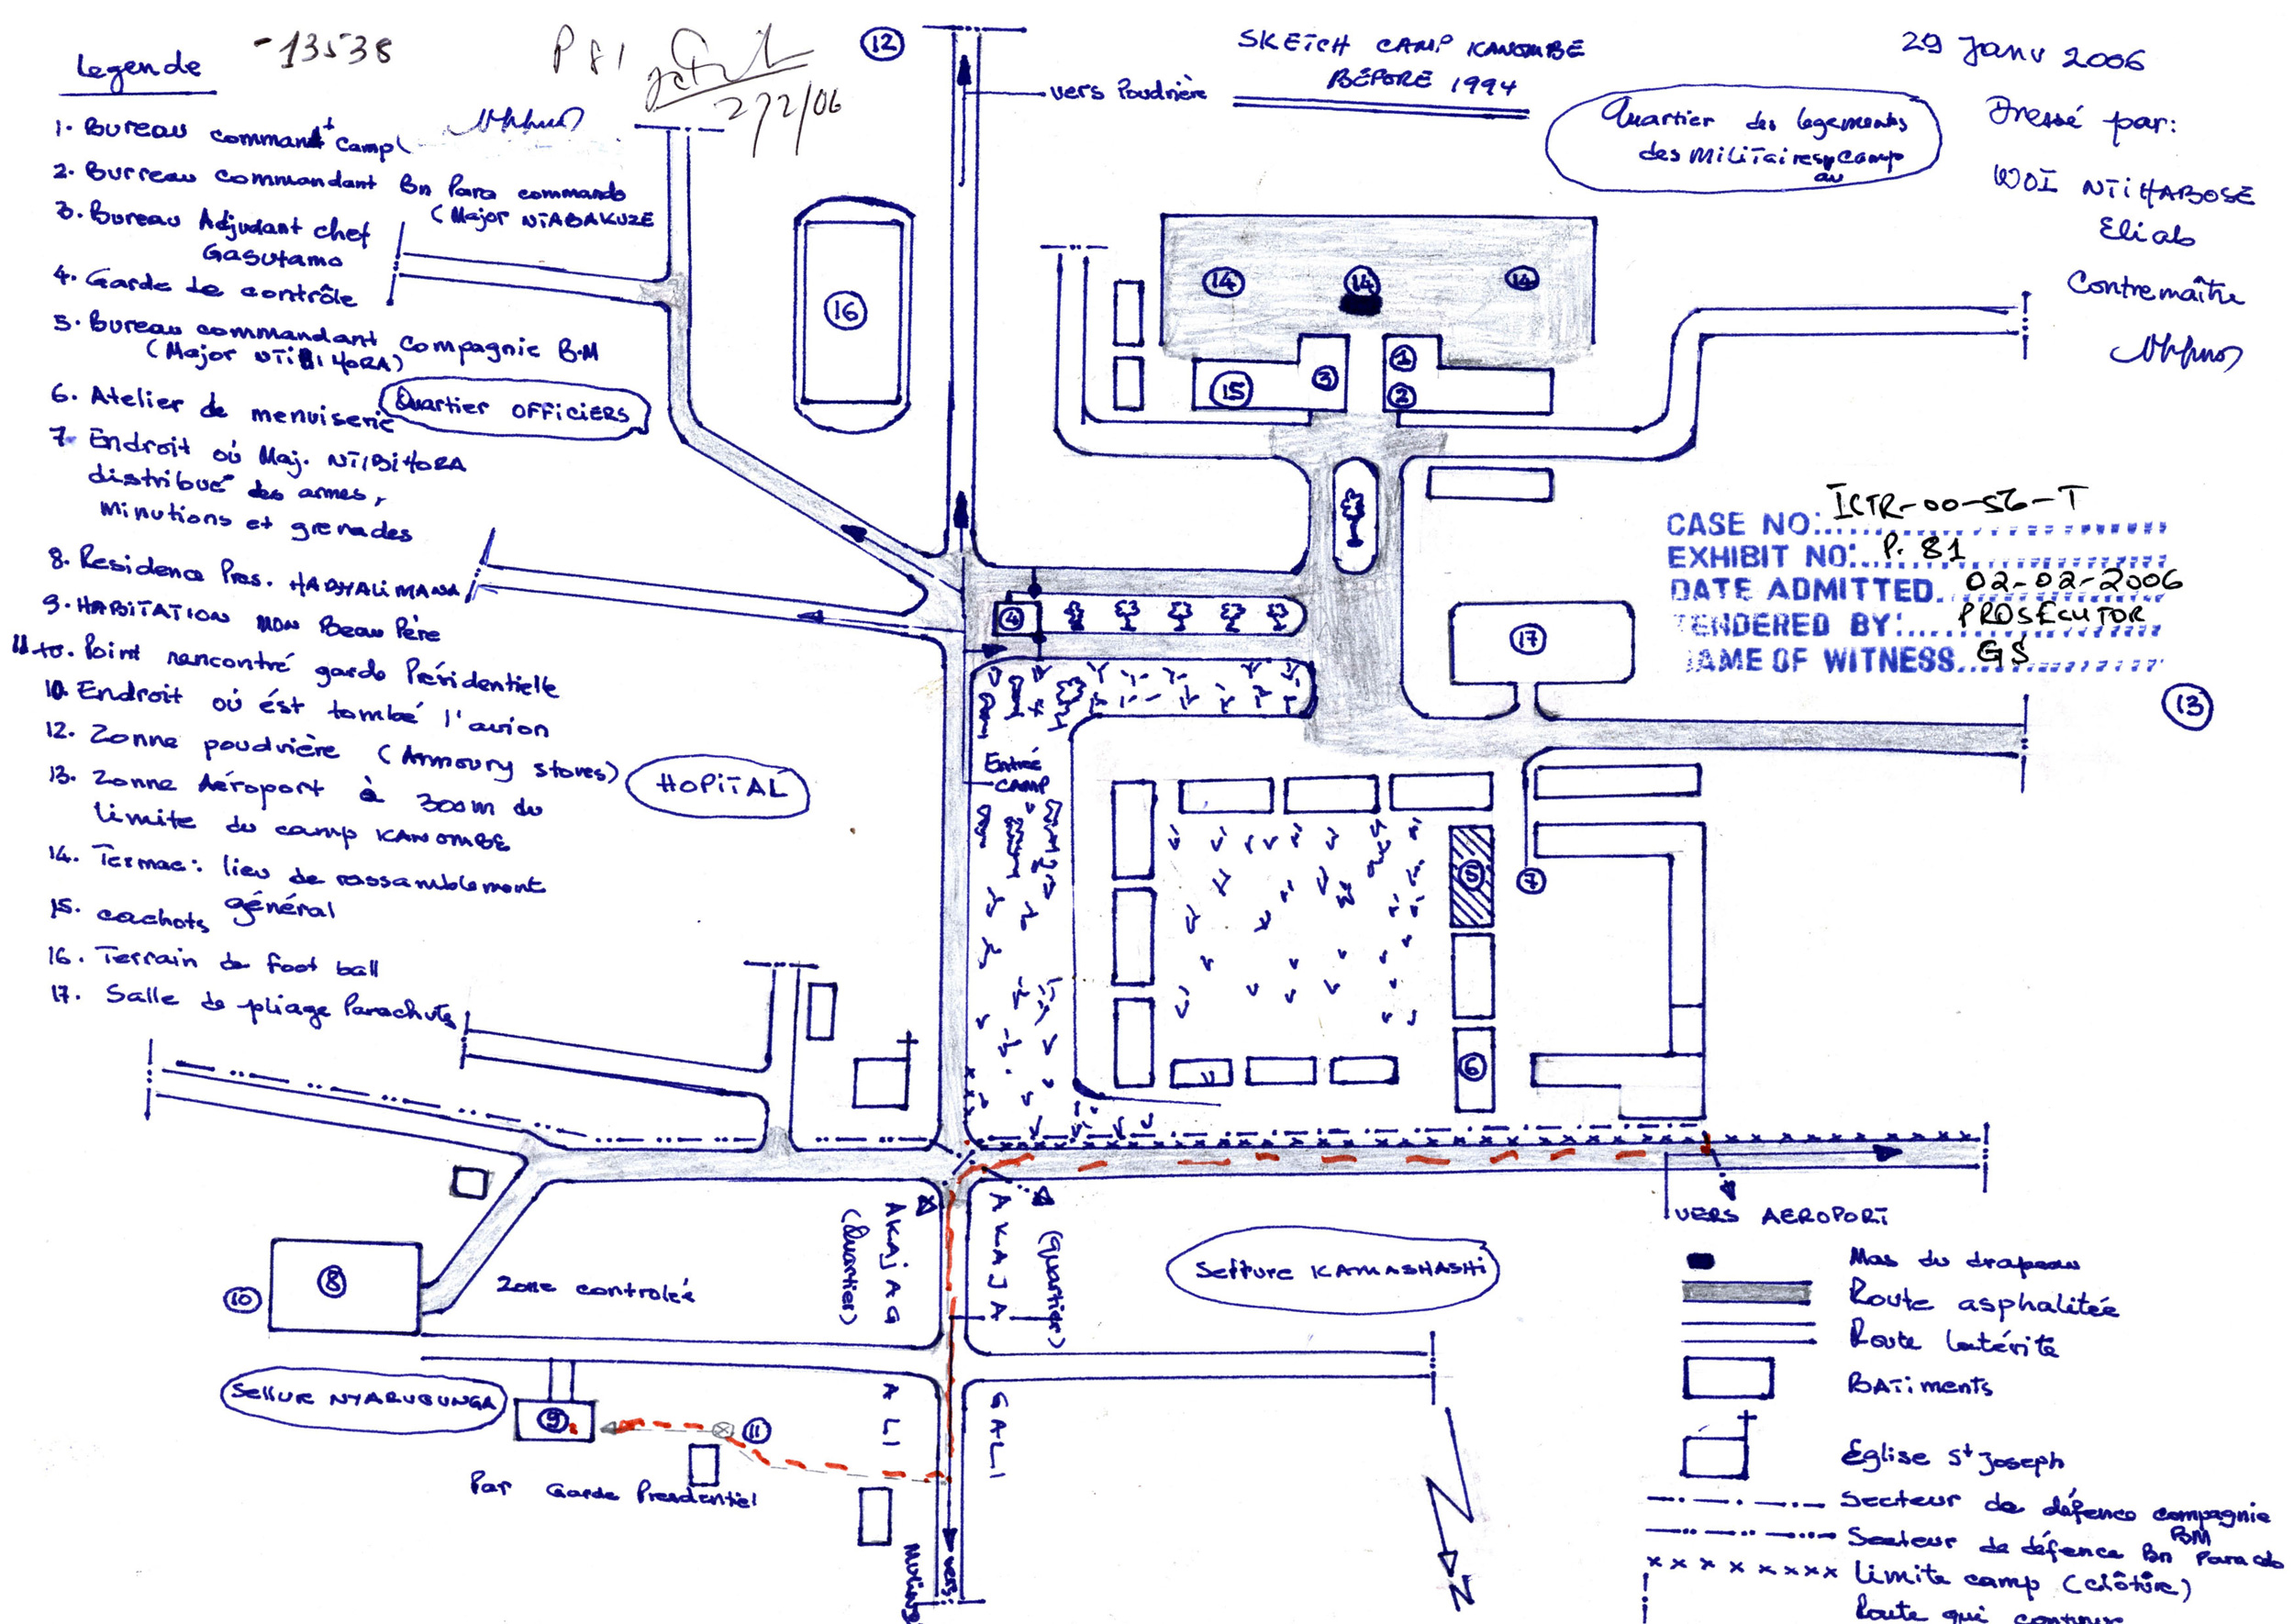 Legende
-13538
P 81
2/2/06
12
vers Poudrière
SKETCH CAMP KANOMBE
BEFORE 1994
29 Janv 2006
Dressé par:
WOI NTIHABOSE
Eliab
Contremaître
Quartier des logements
des militaires camp
au
1. Bureau command+ camp
2. Burreau commandant Bn Para commando
(Major NTABAKUZE
3. Bureau Adjudant chef
Gasutamo
4. Garde de contrôle
5. Bureau commandant compagnie B.M
(Major NTIBIHORA)
6. Atelier de menuiserie
7. Endroit où Maj. NTIBIHORA
distribué des armes,
minutions et grenades
8. Residence Pres. HABYALIMANA
9. HABITATION MON Beau Père
11. Point rencontré garde Présidentielle
10. Endroit où ést tombé l'avion
12. Zonne poudrière (Armoury stores)
13. Zonne Aéroport à 300m du
limite du camp KANOMBE
14. Termac: lieu de rassamblement
général
15. cachots
16. Terrain de foot ball
17. Salle de pliage Parachute
Quartier OFFICIERS
HOPITAL
16
14
14
14
15
3
1
2
4
17
13
CASE NO:.. ICTR-00-56-T
EXHIBIT NO:.. P. 81
DATE ADMITTED. 02-02-2006
TENDERED BY:.... PROSECUTOR
NAME OF WITNESS.. GS
Entrée
CAMP
5
7
6
VERS AEROPORT
AKAJAG
ALI
(Quartier)
AKAJA
GALI
(quartier)
8
10
Zone controléé
Sellure KAMASHASHI
Sellure NYARUGUNGA
9
11
Par Garde Presdentiel
vers
N
Mas du drapeau
Route asphalitée
Route latérite
BATiments
Eglise St Joseph
Secteur de défence compagnie
BM
Secteur de défence Bn Para cdo
Limite camp (clôture)
Route qui continue